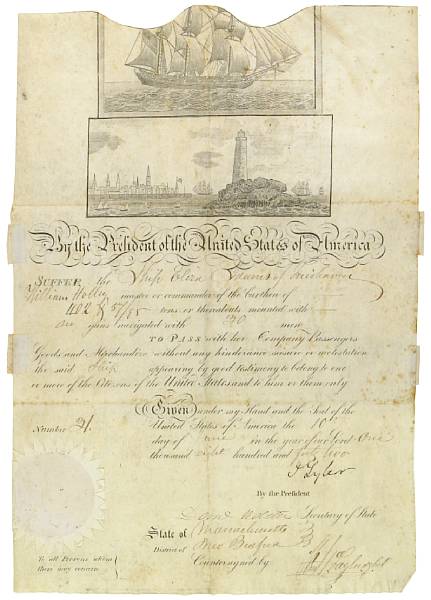 By the President of the United States of America
SUFFER the Ship Eliza Adams of Fairhaven
William Hathaway master or commander of the burthen of
402 & 57/95 tons or thereabouts mounted with
no guns navigated with men
TO PASS with her Company Passengers
Goods and Merchandize without any hinderance seisure or molestation
the said Ship appearing by good testimony to belong to one
or more of the Citizens of the United States and to him or them only
Given under my Hand and the Seal of the
Number 21. United States of America the 10
day of in the year of our Lord One
thousand eight hundred and forty two
J Tyler
By the President
Secretary of State
State of Massachusetts
District of New Bedford
Countersigned by
To all Persons whom
these may concern